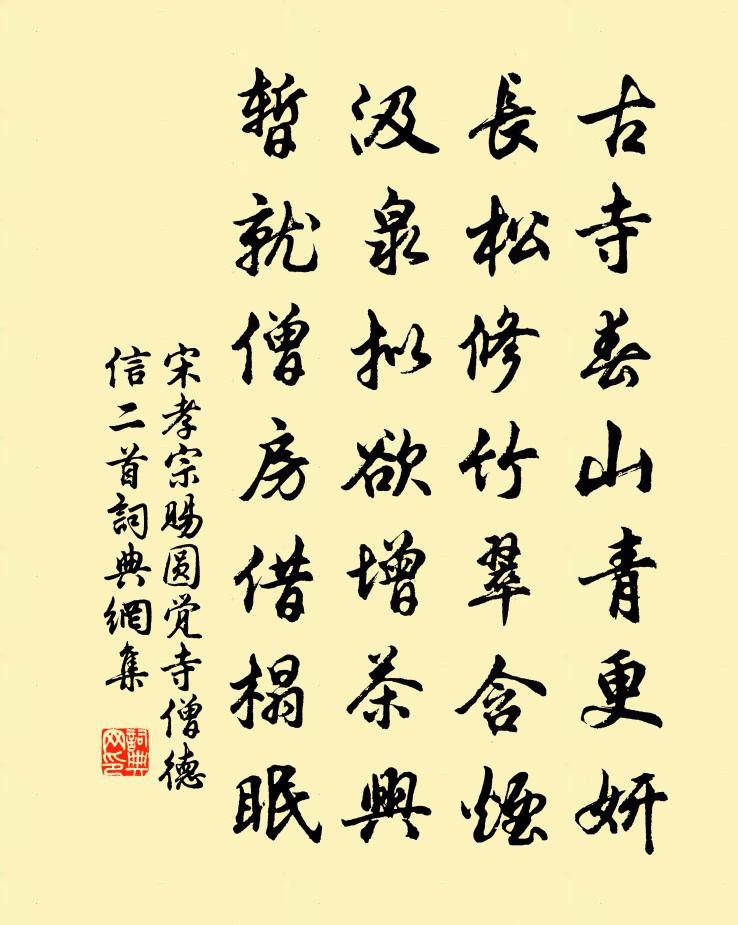 古寺春山青更妍
長松修竹翠含煙
汲泉擬欲增茶興
暫就僧房借榻眠
宋孝宗賜圓覺寺僧德
信二首詞典網集
詞典網印